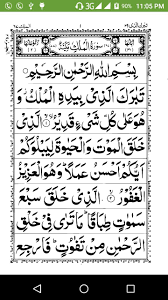 11:05 PM
سُوْرَةُ الْمُلْكِ مَكِّيَّةٌ
بِسْمِ اللهِ الرَّحْمٰنِ الرَّحِيْمِ
تَبٰرَكَ الَّذِىْ بِيَدِهِ الْمُلْكُ وَ
هُوَ عَلٰى كُلِّ شَىْءٍ قَدِيْرُۨ الَّذِىْ
خَلَقَ الْمَوْتَ وَالْحَيٰوةَ لِيَبْلُوَكُمْ
اَيُّكُمْ اَحْسَنُ عَمَلًا وَهُوَ الْعَزِيْزُ
الْغَفُوْرُ الَّذِىْ خَلَقَ سَبْعَ
سَمٰوٰتٍ طِبَاقًا مَا تَرٰى فِىْ خَلْقِ
الرَّحْمٰنِ مِنْ تَفٰوُتٍ فَارْجِعِ